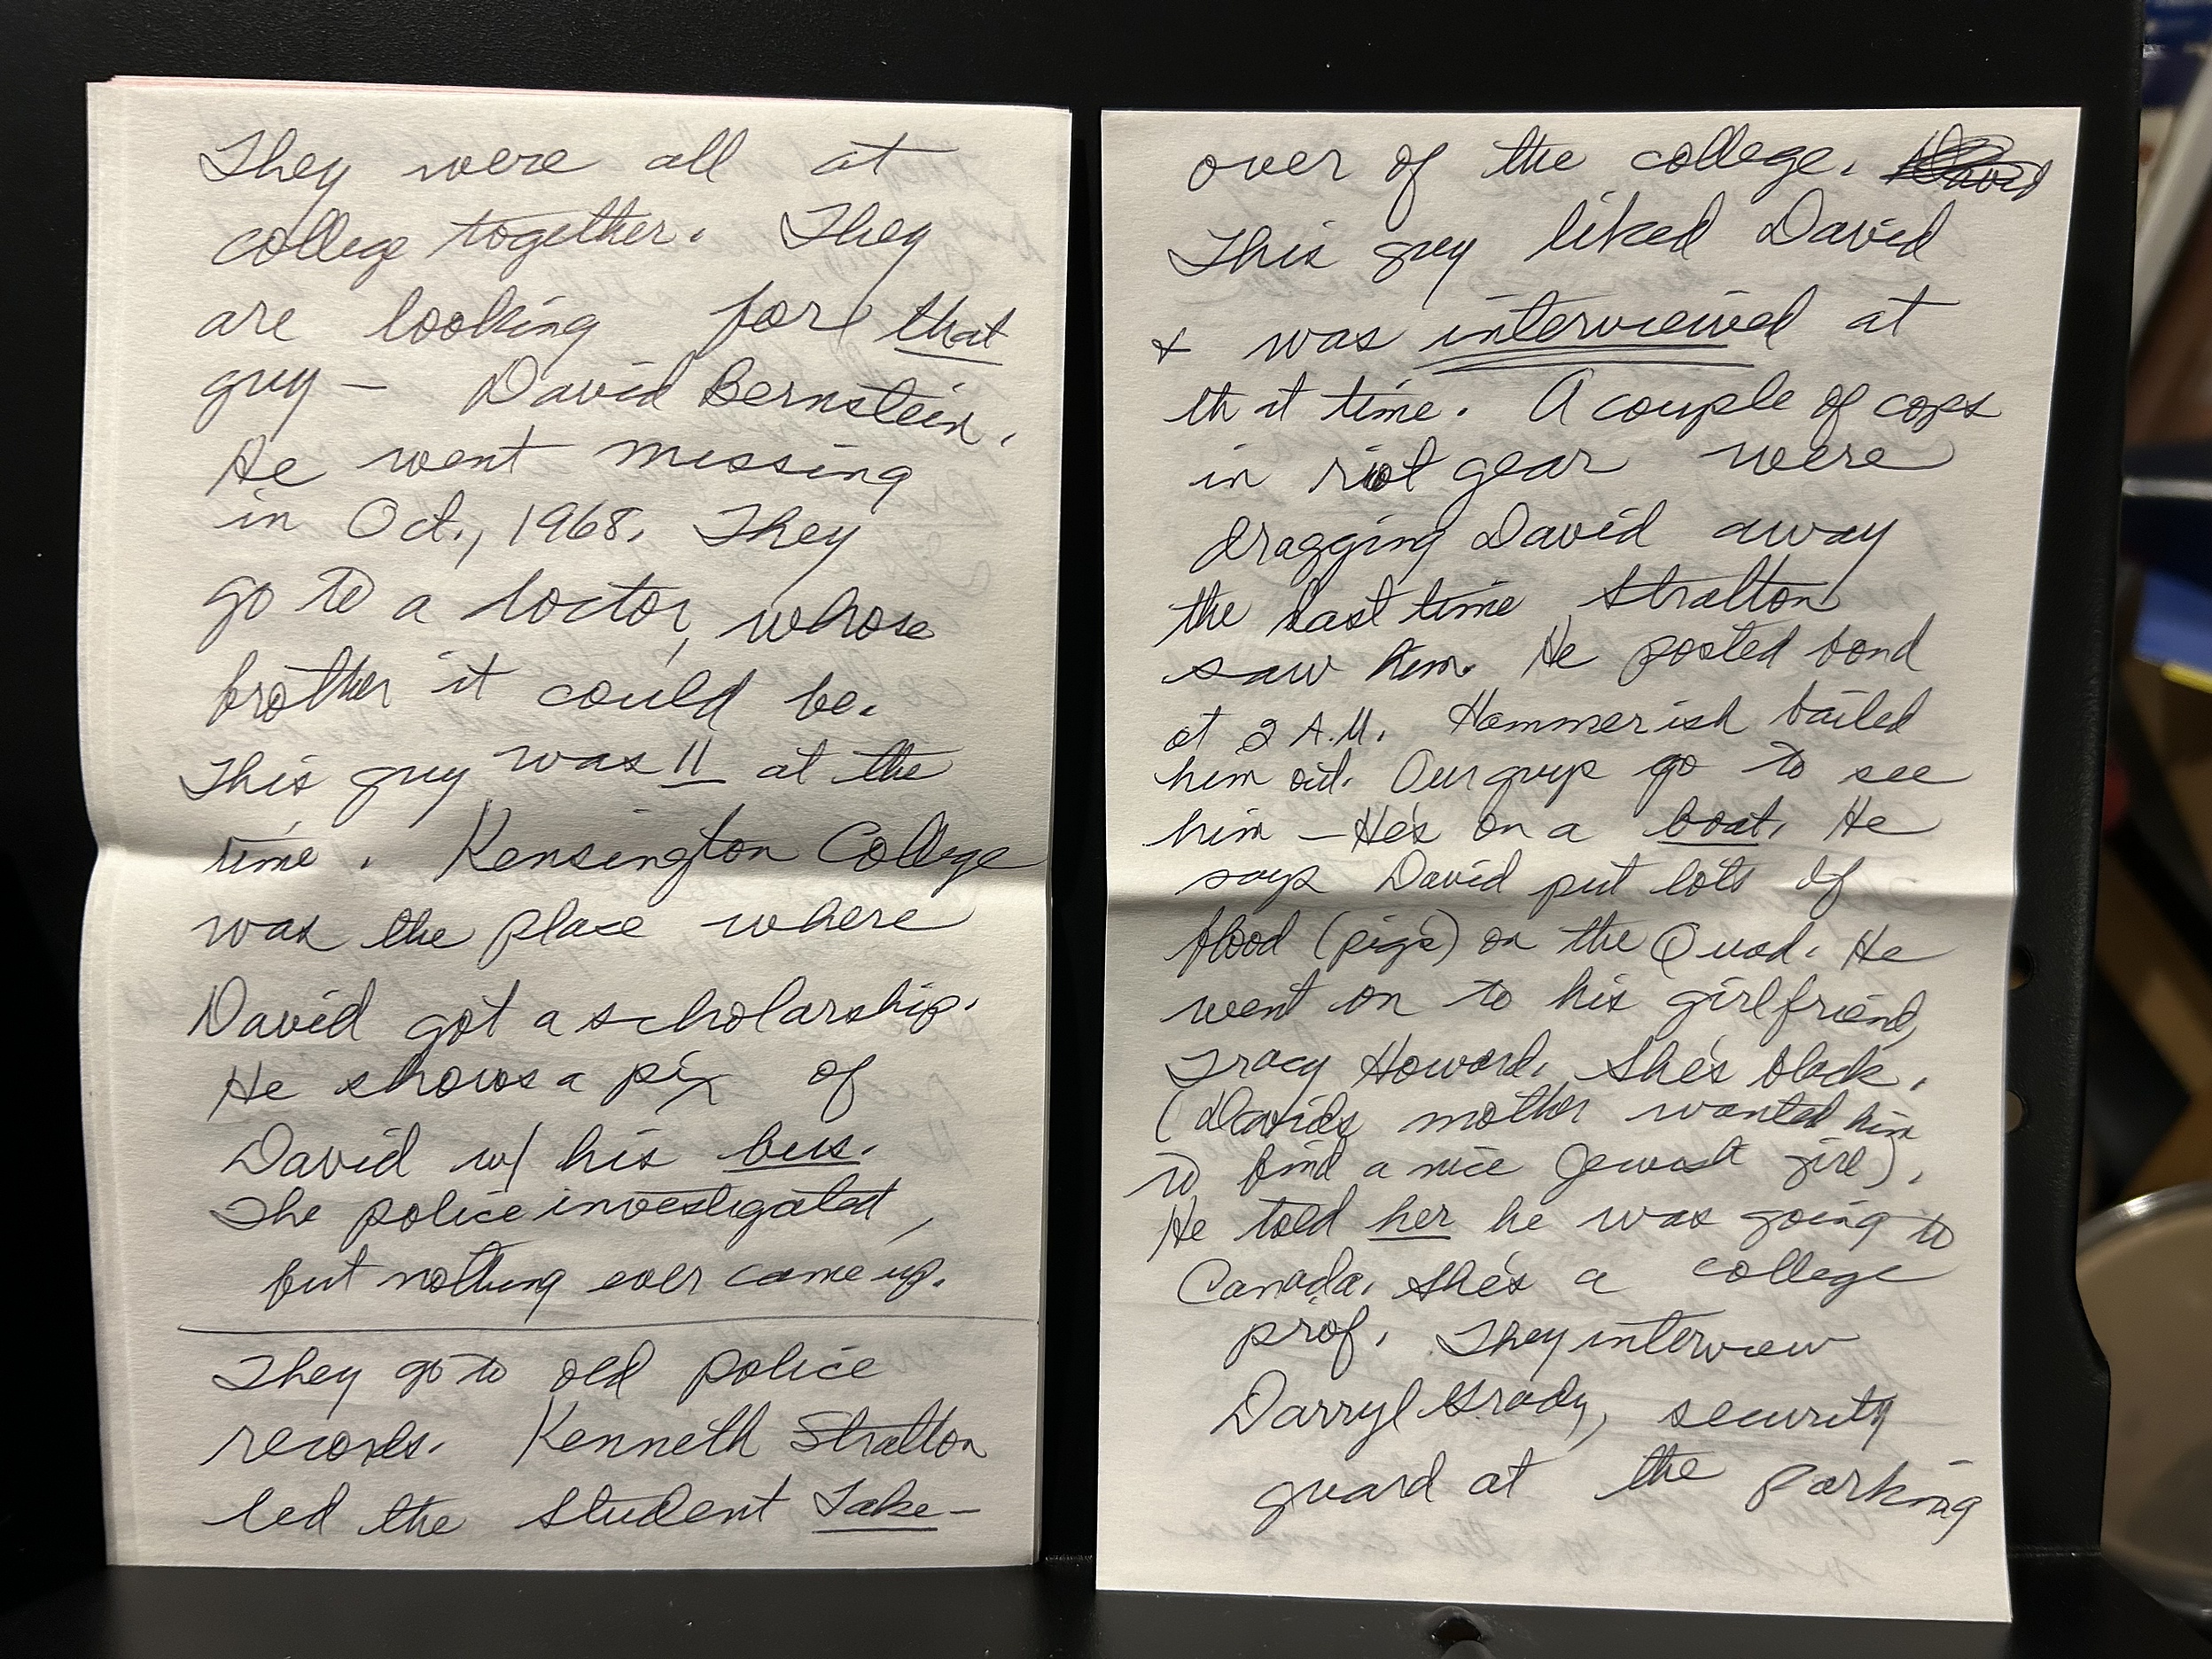 They were all at
college together. They
are looking for that
guy — David Bernstein.
He went missing
in Oct., 1968. They
go to a doctor, whose
brother it could be.
This guy was 11 at the
time. Kensington College
was the place where
David got a scholarship.
He shows a pix of
David w/ his bus.
The police investigated,
but nothing ever came up.
They go to old police
records. Kenneth Stratton
led the student Take-
over of the college.
This guy liked David
+ was interviewed at
that time. A couple of cops
in riot gear were
dragging David away
the last time Stratton
saw him. He posted bond
at 2 A.M. Hammerish bailed
him out. Our guys go to see
him — He's on a boat. He
says David put lots of
blood (pigs) on the Quad. He
went on to his girlfriend,
Tracy Howard. She's black.
(Davids mother wanted him
to find a nice Jewish girl).
He told her he was going to
Canada. She's a college
prof. They interview
Darryl Grady, security
guard at the parking